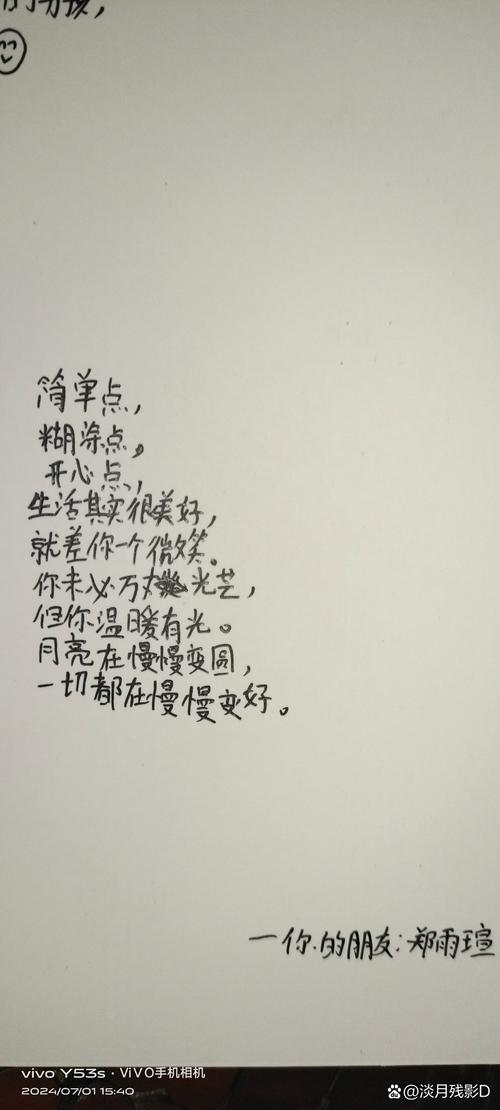 的
简单点，
糊涂点，
开心点，
生活其实很美好，
就差你一个微笑。
你未必万丈光芒，
但你温暖有光。
月亮在慢慢变圆，
一切都在慢慢变好。
一你的朋友：郑雨瑄
vivo Y53s · ViVO手机相机
2024/07/01 15:40
@淡月残影D